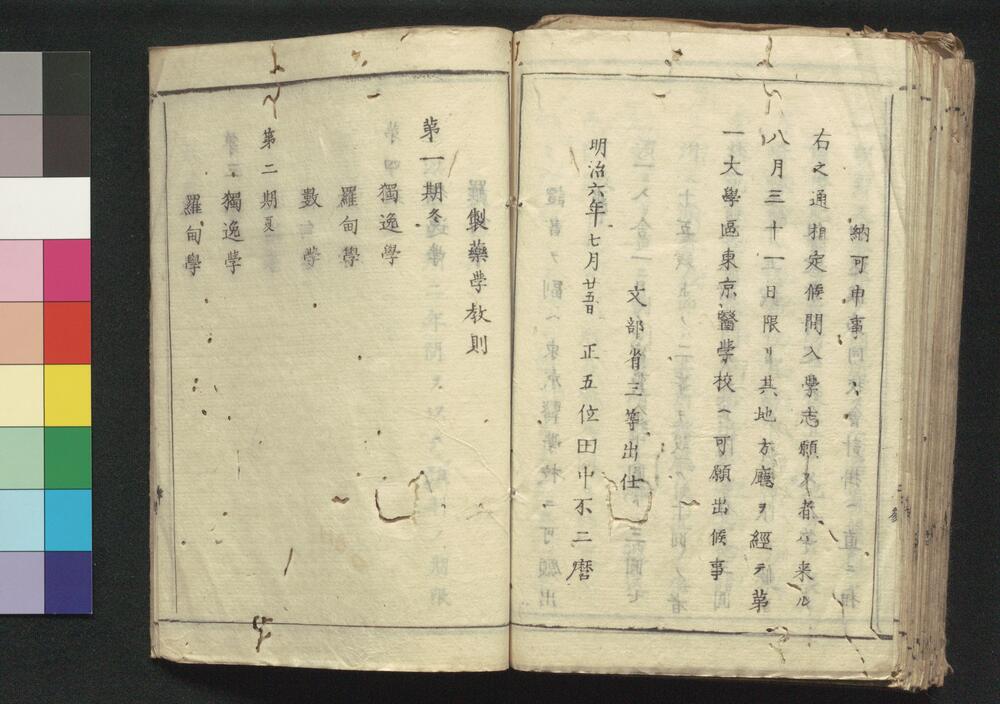 納可申事
右之通相定候間入學志願ノ者ハ来ル
八月三十一日限リ其地方廳ヲ經テ第
一大學區東京醫学校ヘ可願出候事
文部省三等出仕
明治六年七月廿五日 正五位田中不二麿
製藥学教則
第一期冬
獨逸学
羅甸學
數学
第二期夏
獨逸学
羅甸學